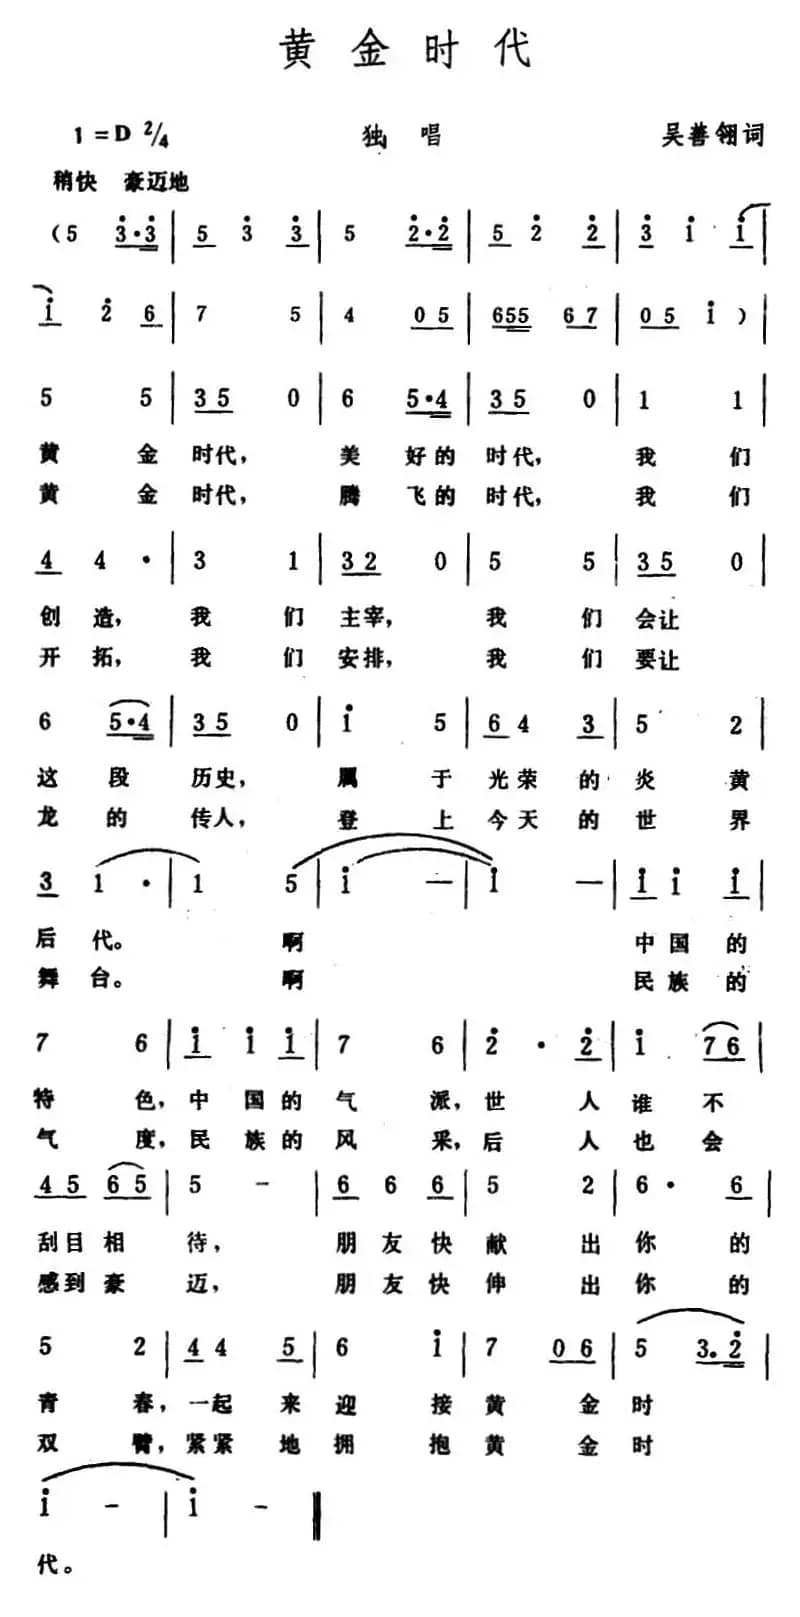 黄金时代
1=D 2/4 独唱 吴善翎词
稍快 豪迈地
(5 3·3 | 5 3 3 | 5 2·2 | 5 2 2 | 3 i i |
i 2 6 | 7 5 | 4 05 | 655 67 | 05 i ) |
5 5 | 35 0 | 6 5·4 | 35 0 | 1 1 |
黄金时代，美好的时代，我们
黄金时代，腾飞的时代，我们
4 4 · | 3 1 | 32 0 | 5 5 | 35 0 |
创造，我们主宰，我们会让
开拓，我们安排，我们要让
6 5·4 | 35 0 | i 5 | 64 3 | 5 2 |
这段历史，属于光荣的炎黄
龙的传人，登上今天的世界
3 1 · | 1 5 | i — | i — | i i i |
后代。啊 中国的
舞台。啊 民族的
7 6 | i i i | 7 6 | 2 · 2 | i 76 |
特色，中国的气派，世人谁不
气度，民族的风采，后人也会
45 65 | 5 - | 6 6 6 | 5 2 | 6 · 6 |
刮目相待，朋友快献出你的
感到豪迈，朋友快伸出你的
5 2 | 4 4 5 | 6 i | 7 06 | 5 3·2 |
青春，一起来迎接黄金时
双臂，紧紧地拥抱黄金时
i - | i - ‖
代。